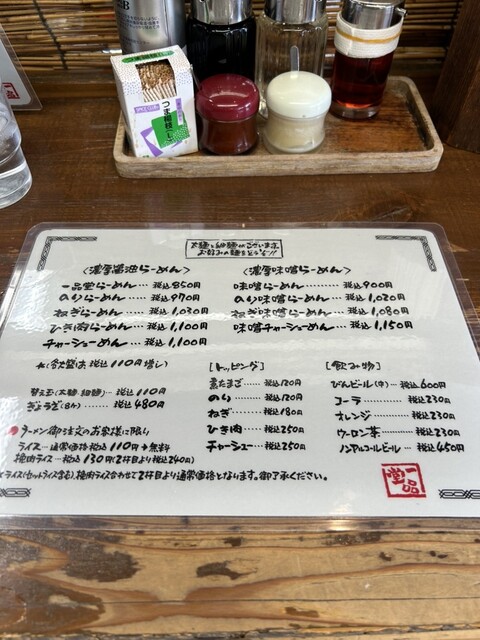 つま楊枝
太麺と細麺がございます。
お好みの麺をどうぞ!!
<濃厚醤油らーめん>
一品堂らーめん… 税込850円
のりらーめん…… 税込970円
ねぎらーめん…… 税込1,030円
ひき肉らーめん… 税込1,100円
チャーシューめん… 税込1,100円
<濃厚味噌らーめん>
味噌らーめん……… 税込900円
のり味噌らーめん… 税込1,020円
ねぎ味噌らーめん… 税込1,080円
味噌チャーシューめん… 税込1,150円
税込110円増し)
替え玉(太麺・細麺)… 税込110円
ぎょうざ(8ヶ)…… 税込480円
ラーメン御注文のお客様に限り
ライス…通常価格税込110円→無料
挽肉ライス…税込130円(2杯目より税込240円)
ライス(セットライス含む)、挽肉ライス合わせて2杯目より通常価格となります。御了承ください。
[トッピング]
煮たまご…… 税込120円
のり………… 税込120円
ねぎ………… 税込180円
ひき肉……… 税込250円
チャーシュー… 税込250円
[飲み物]
びんビール(中)… 税込600円
コーラ………… 税込230円
オレンジ……… 税込230円
ウーロン茶…… 税込230円
ノンアルコールビール… 税込450円
一品堂